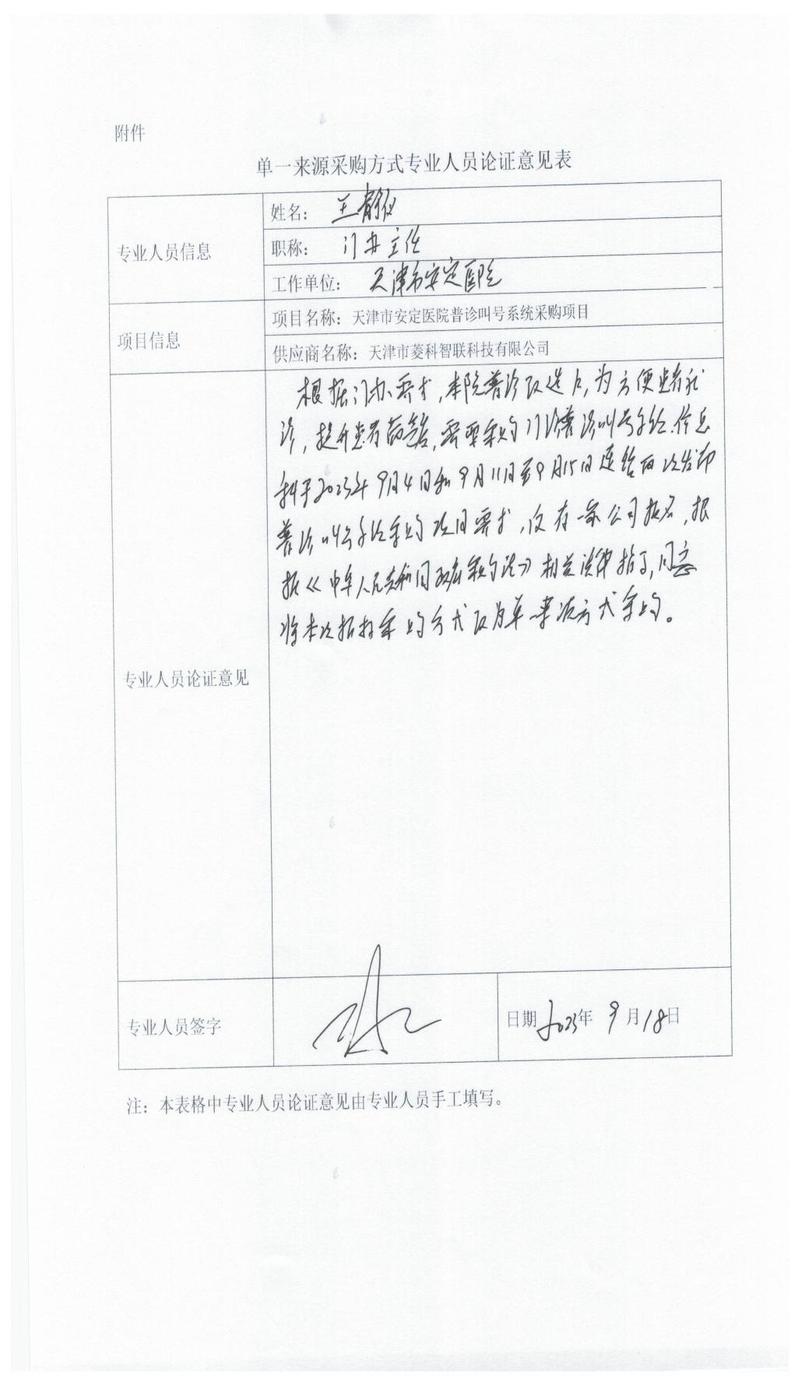 附件
单一来源采购方式专业人员论证意见表
专业人员信息
姓名：王静仪
职称：门办主任
工作单位：天津市安定医院
项目信息
项目名称：天津市安定医院普诊叫号系统采购项目
供应商名称：天津市菱科智联科技有限公司
专业人员论证意见
根据门办需求，本院普诊改造后，为方便患者就
诊，提升患者，需要采购门诊普诊叫号系统。信息
科于2023年9月4日和9月11日至9月15日连续两次发布
普诊叫号系统采购项目需求，仅有一家公司报名，根
据《中华人民共和国政府采购法》相关法律指，同意
将本次招标采购方式改为单一来源方式采购。
专业人员签字
日期2023年9月18日
注：本表格中专业人员论证意见由专业人员手工填写。